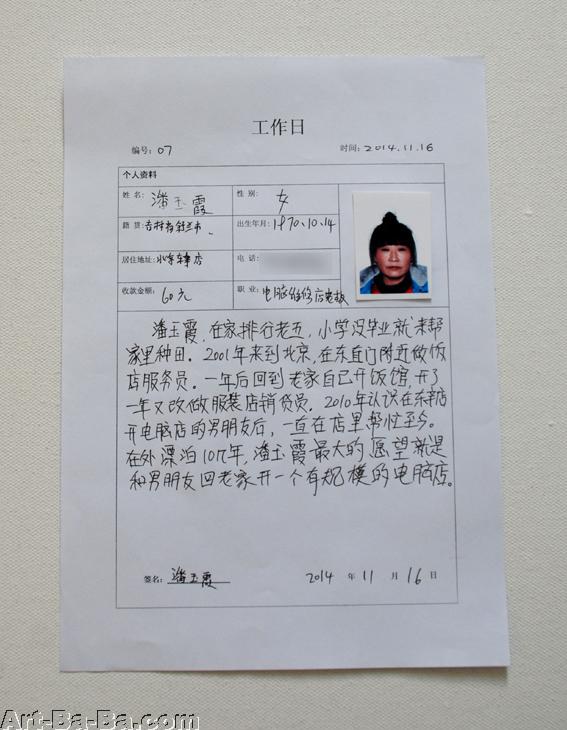 工作日
编号：07 时间：2014.11.16
个人资料
姓名：潘玉霞 性别：女
籍贯：吉林省舒兰市 出生年月：1970.10.14
居住地址：北京 店 电话：
收款金额：60元 职业：电脑维修店老板
潘玉霞，在家排行老五，小学没毕业就来帮
家里种田。2001年来到北京，在东直门附近做饭
店服务员。一年后回到老家自己开饭馆，开了
一年又改做服装店销货员。2010年认识在东辛店
开电脑店的男朋友后，一直在店里帮忙至今。
在外漂泊10几年，潘玉霞最大的愿望就是
和男朋友回老家开一个有规模的电脑店。
签名：潘玉霞 2014 年 11 月 16 日
Art-Ba-Ba.com